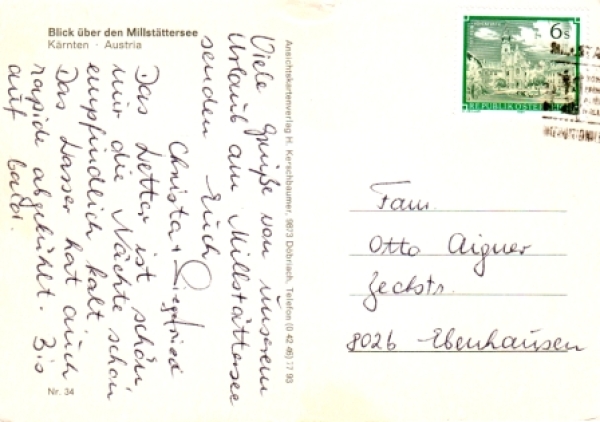 Blick über den Millstättersee
Kärnten · Austria
Viele Grüße von unserem
Urlaub am Millstättersee
senden Euch
Christa + Siegfried
Das Wetter ist schön,
nur die Nächte schon
empfindlich kalt.
Das Wasser hat auch
rapide abgekühlt. Bis
auf bald.
Nr. 34
Ansichtskartenverlag H. Kerschbaumer, 9873 Döbriach, Telefon (0 42 46) 77 93
6s
REPUBLIK ÖSTERREICH
Fam.
Otto Aigner
Zechstr.
8026 Ebenhausen